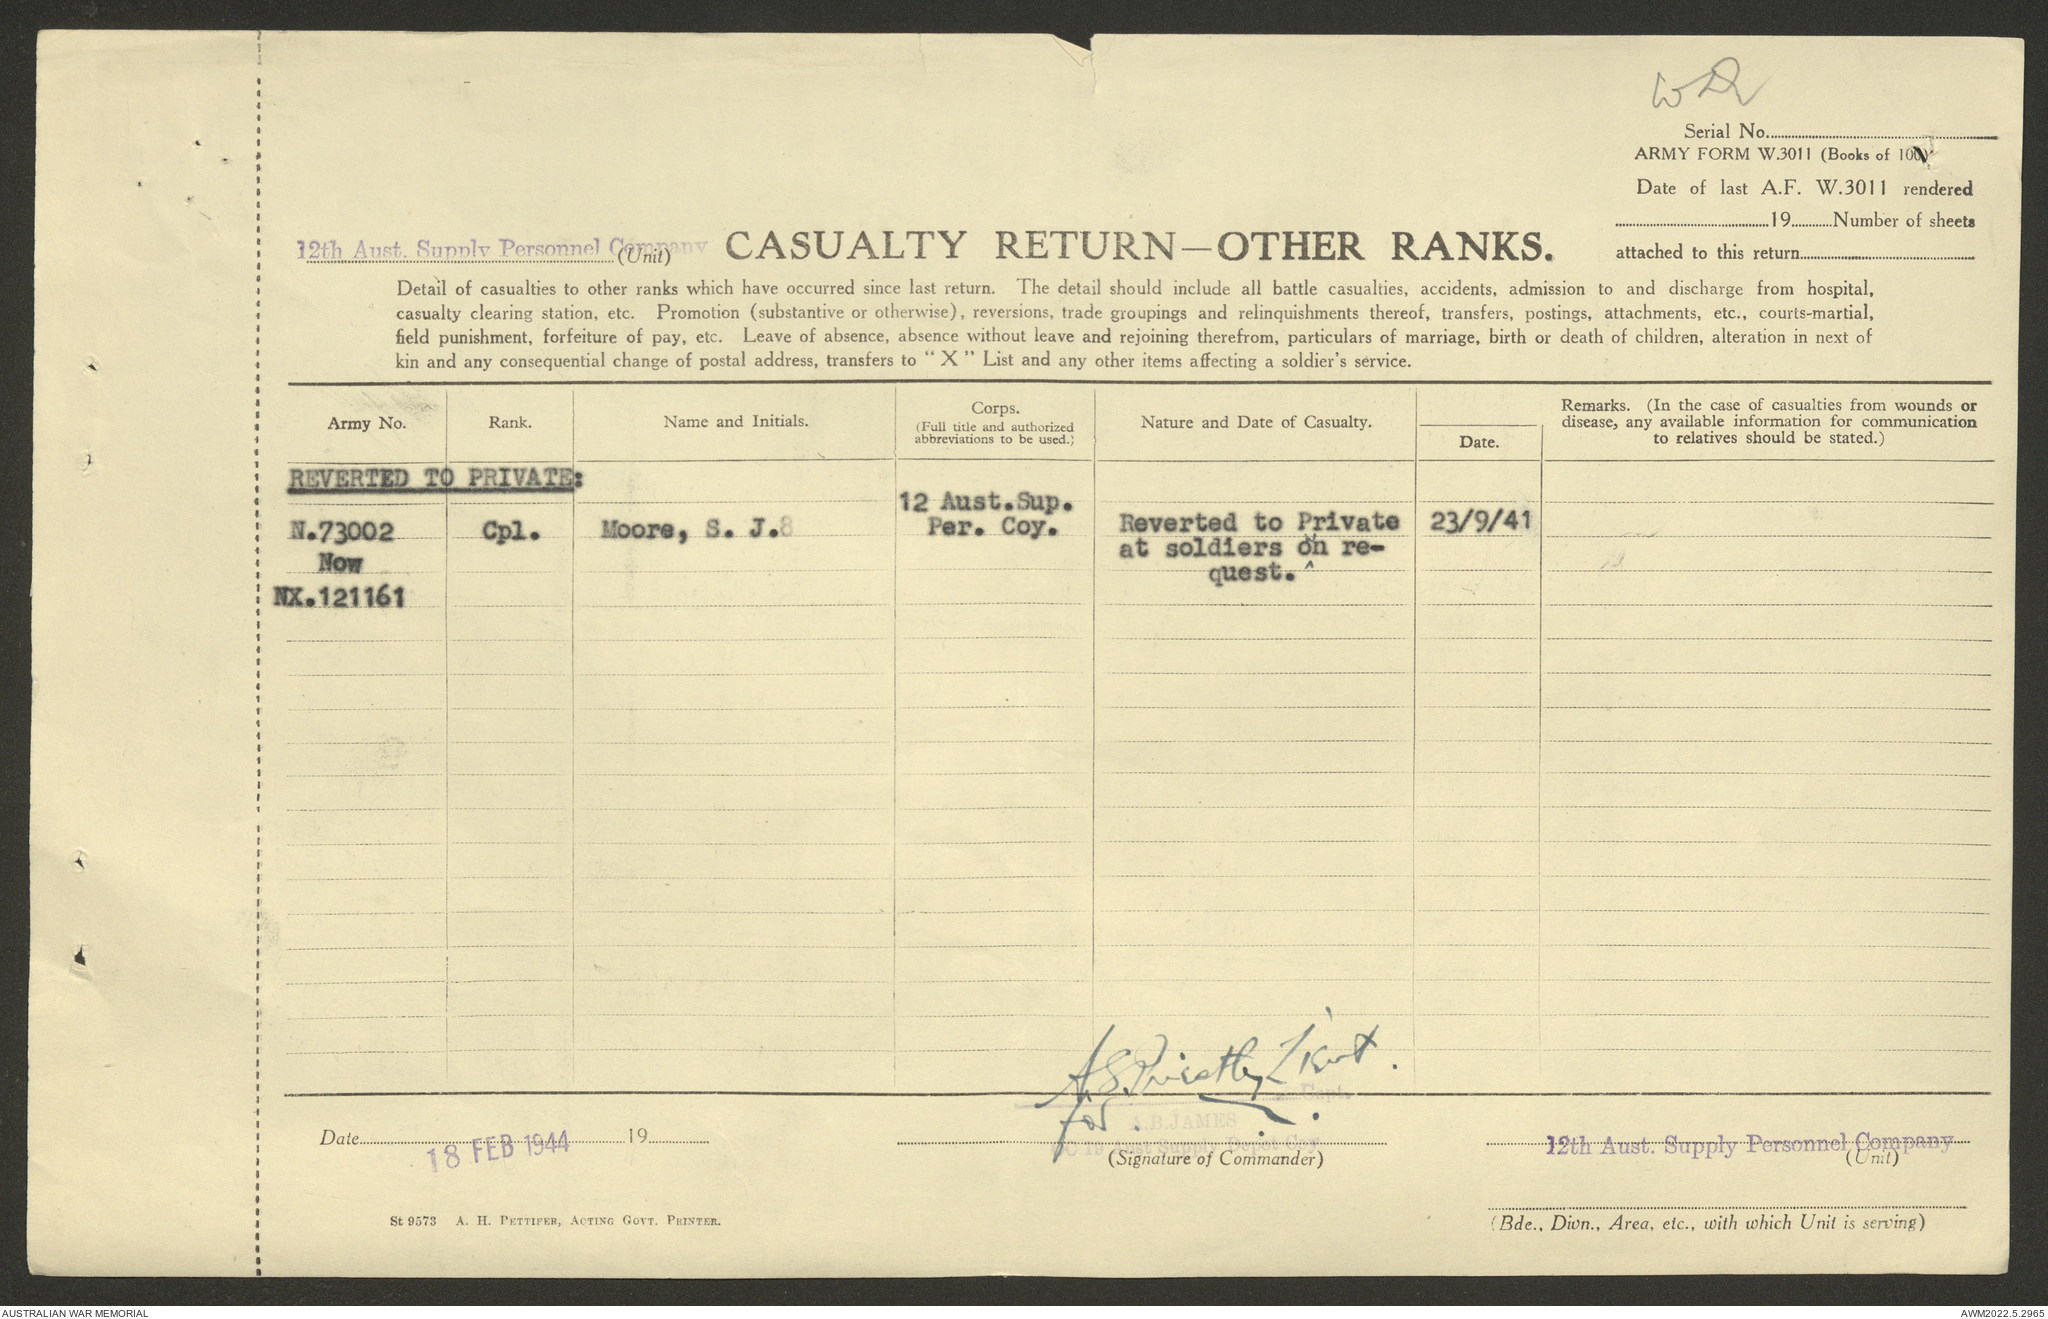 Serial No.
ARMY FORM W.3011 (Books of 100)
Date of last A.F. W.3011 rendered
19 Number of sheets
attached to this return
12th Aust. Supply Personnel Company
(Unit)
CASUALTY RETURN—OTHER RANKS.
Detail of casualties to other ranks which have occurred since last return. The detail should include all battle casualties, accidents, admission to and discharge from hospital,
casualty clearing station, etc. Promotion (substantive or otherwise), reversions, trade groupings and relinquishments thereof, transfers, postings, attachments, etc., courts-martial,
field punishment, forfeiture of pay, etc. Leave of absence, absence without leave and rejoining therefrom, particulars of marriage, birth or death of children, alteration in next of
kin and any consequential change of postal address, transfers to "X" List and any other items affecting a soldier's service.
Army No.
Rank.
Name and Initials.
Corps.
(Full title and authorized
abbreviations to be used.)
Nature and Date of Casualty.
Date.
Remarks. (In the case of casualties from wounds or
disease, any available information for communication
to relatives should be stated.)
REVERTED TO PRIVATE:
N.73002
Now
NX.121161
Cpl.
Moore, S. J.
12 Aust.Sup.
Per. Coy.
Reverted to Private
at soldiers on re-
quest.
23/9/41
A.S. Priestley Lieut.
for
Capt.
A.B.JAMES
OC 19 Aust Supply Depot Coy
(Signature of Commander)
Date
18 FEB 1944
19
12th Aust. Supply Personnel Company
(Unit)
(Bde., Divn., Area, etc., with which Unit is serving)
St 9573 A. H. PETTIFER, ACTING GOVT. PRINTER.
AUSTRALIAN WAR MEMORIAL
AWM2022.5.2965